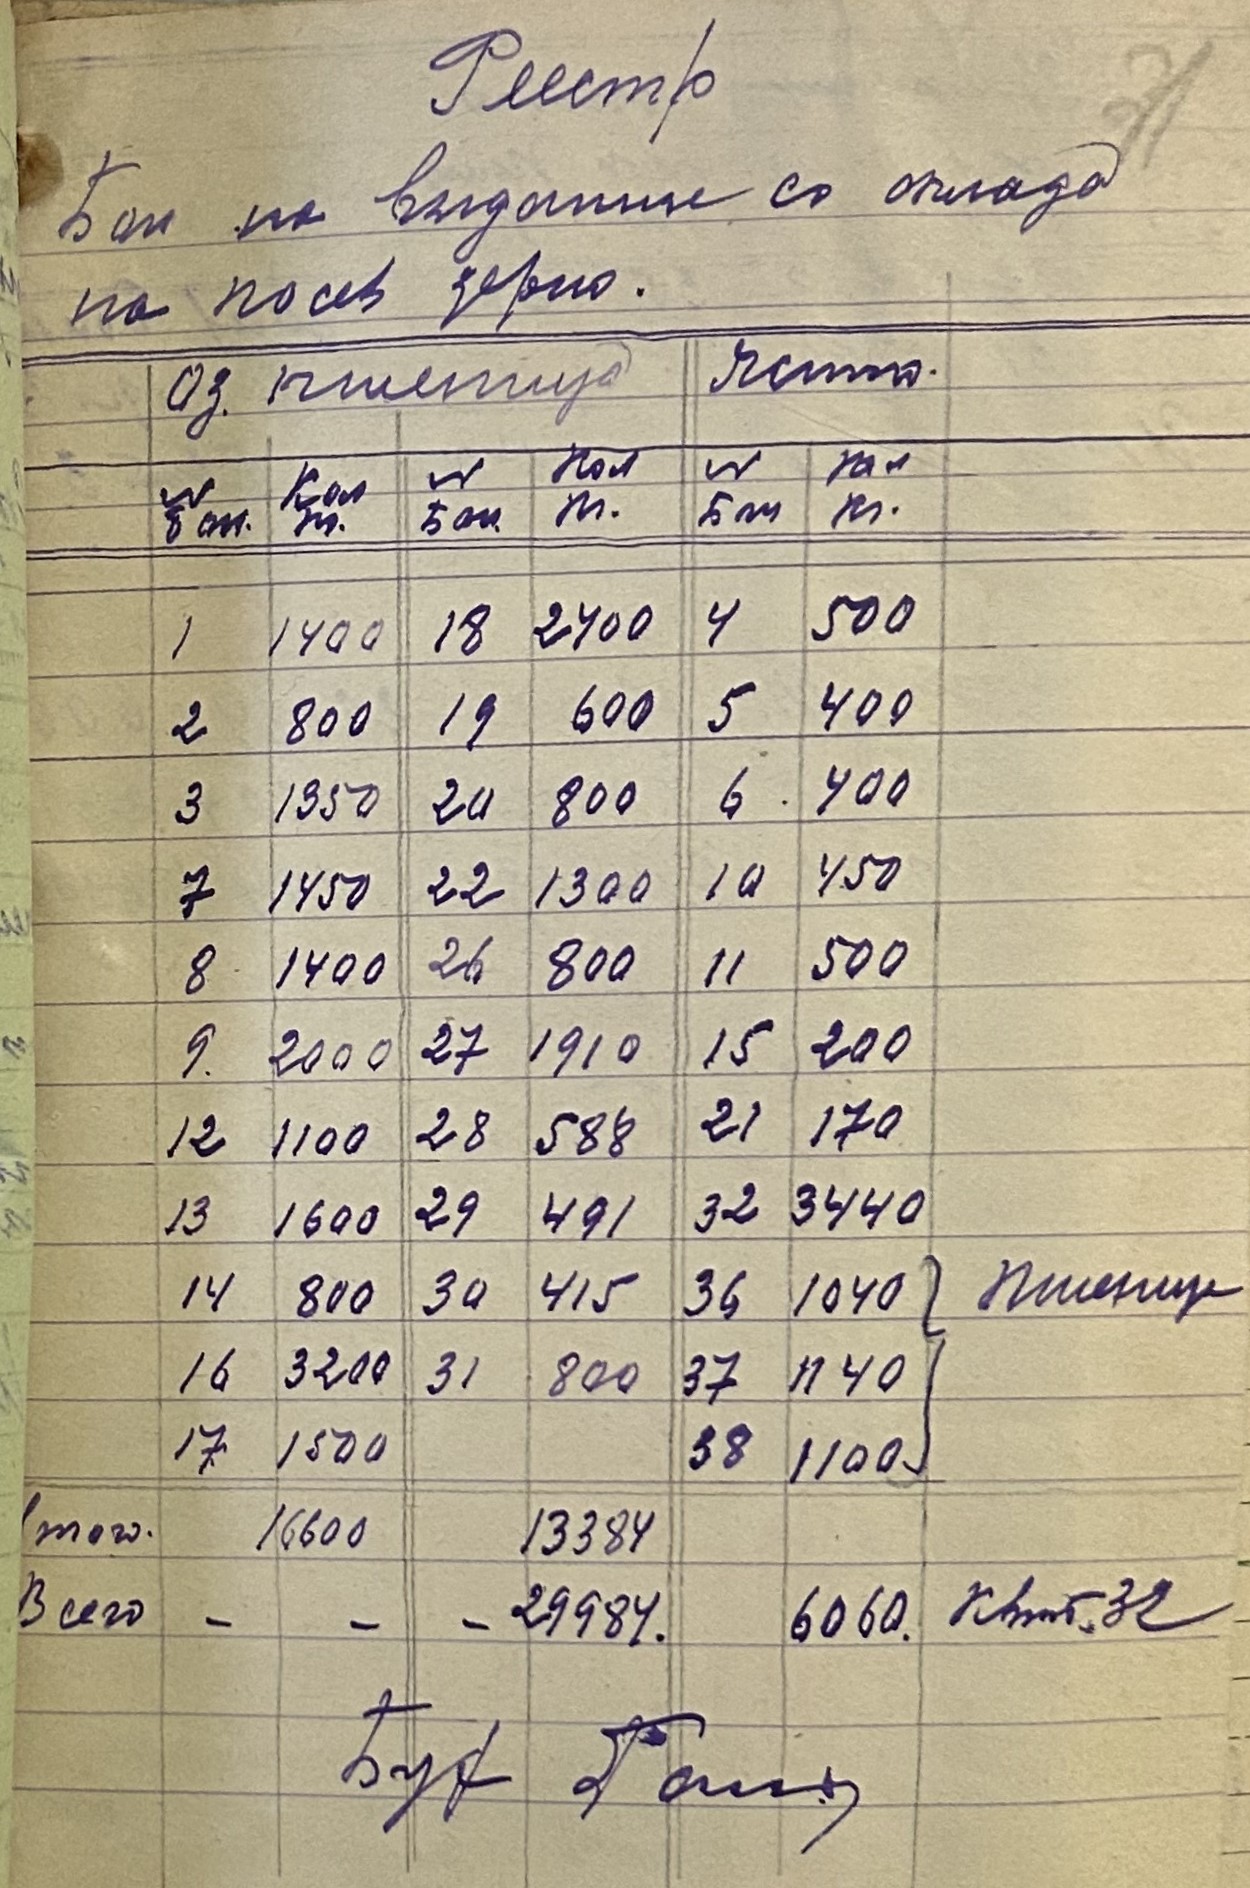 Реестр
Бон на выданные со склада
на посев зерно.
Оз. пшеница Ячмень.
№ Бон. Кол кг. № Бон. Кол кг. № Бон Кол кг.
1 1400 18 2400 4 500
2 800 19 600 5 400
3 1350 20 800 6 400
7 1450 22 1300 10 450
8 1400 26 800 11 500
9. 2000 27 1910 15 200
12 1100 28 588 21 170
13 1600 29 491 32 3440
14 800 30 415 36 1040 } Пшеница
16 3200 31 800 37 1140
17 1500 38 1100
Итого. 16600 13384
Всего - - - 29984. 6060. Квит. 32
Бух